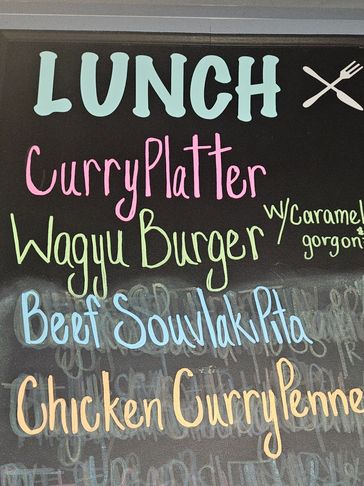 LUNCH
Curry Platter
Wagyu Burger w/Caramel
& gorgon
Beef Souvlaki Pita
Chicken Curry Penne